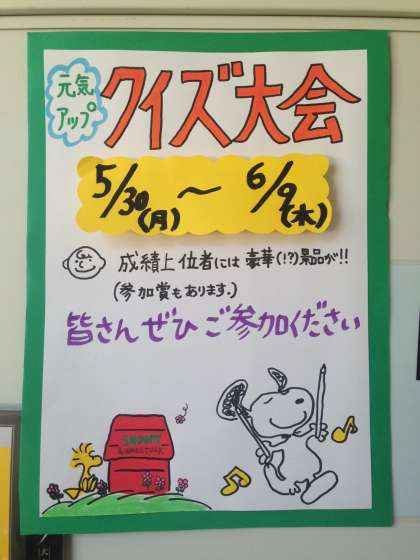 元気
アップ
クイズ大会
5/30(月)〜6/9(木)
成績上位者には豪華(!?)景品が!!
(参加賞もあります。)
皆さんぜひご参加ください
SNOOPY
&WOODSTOCK